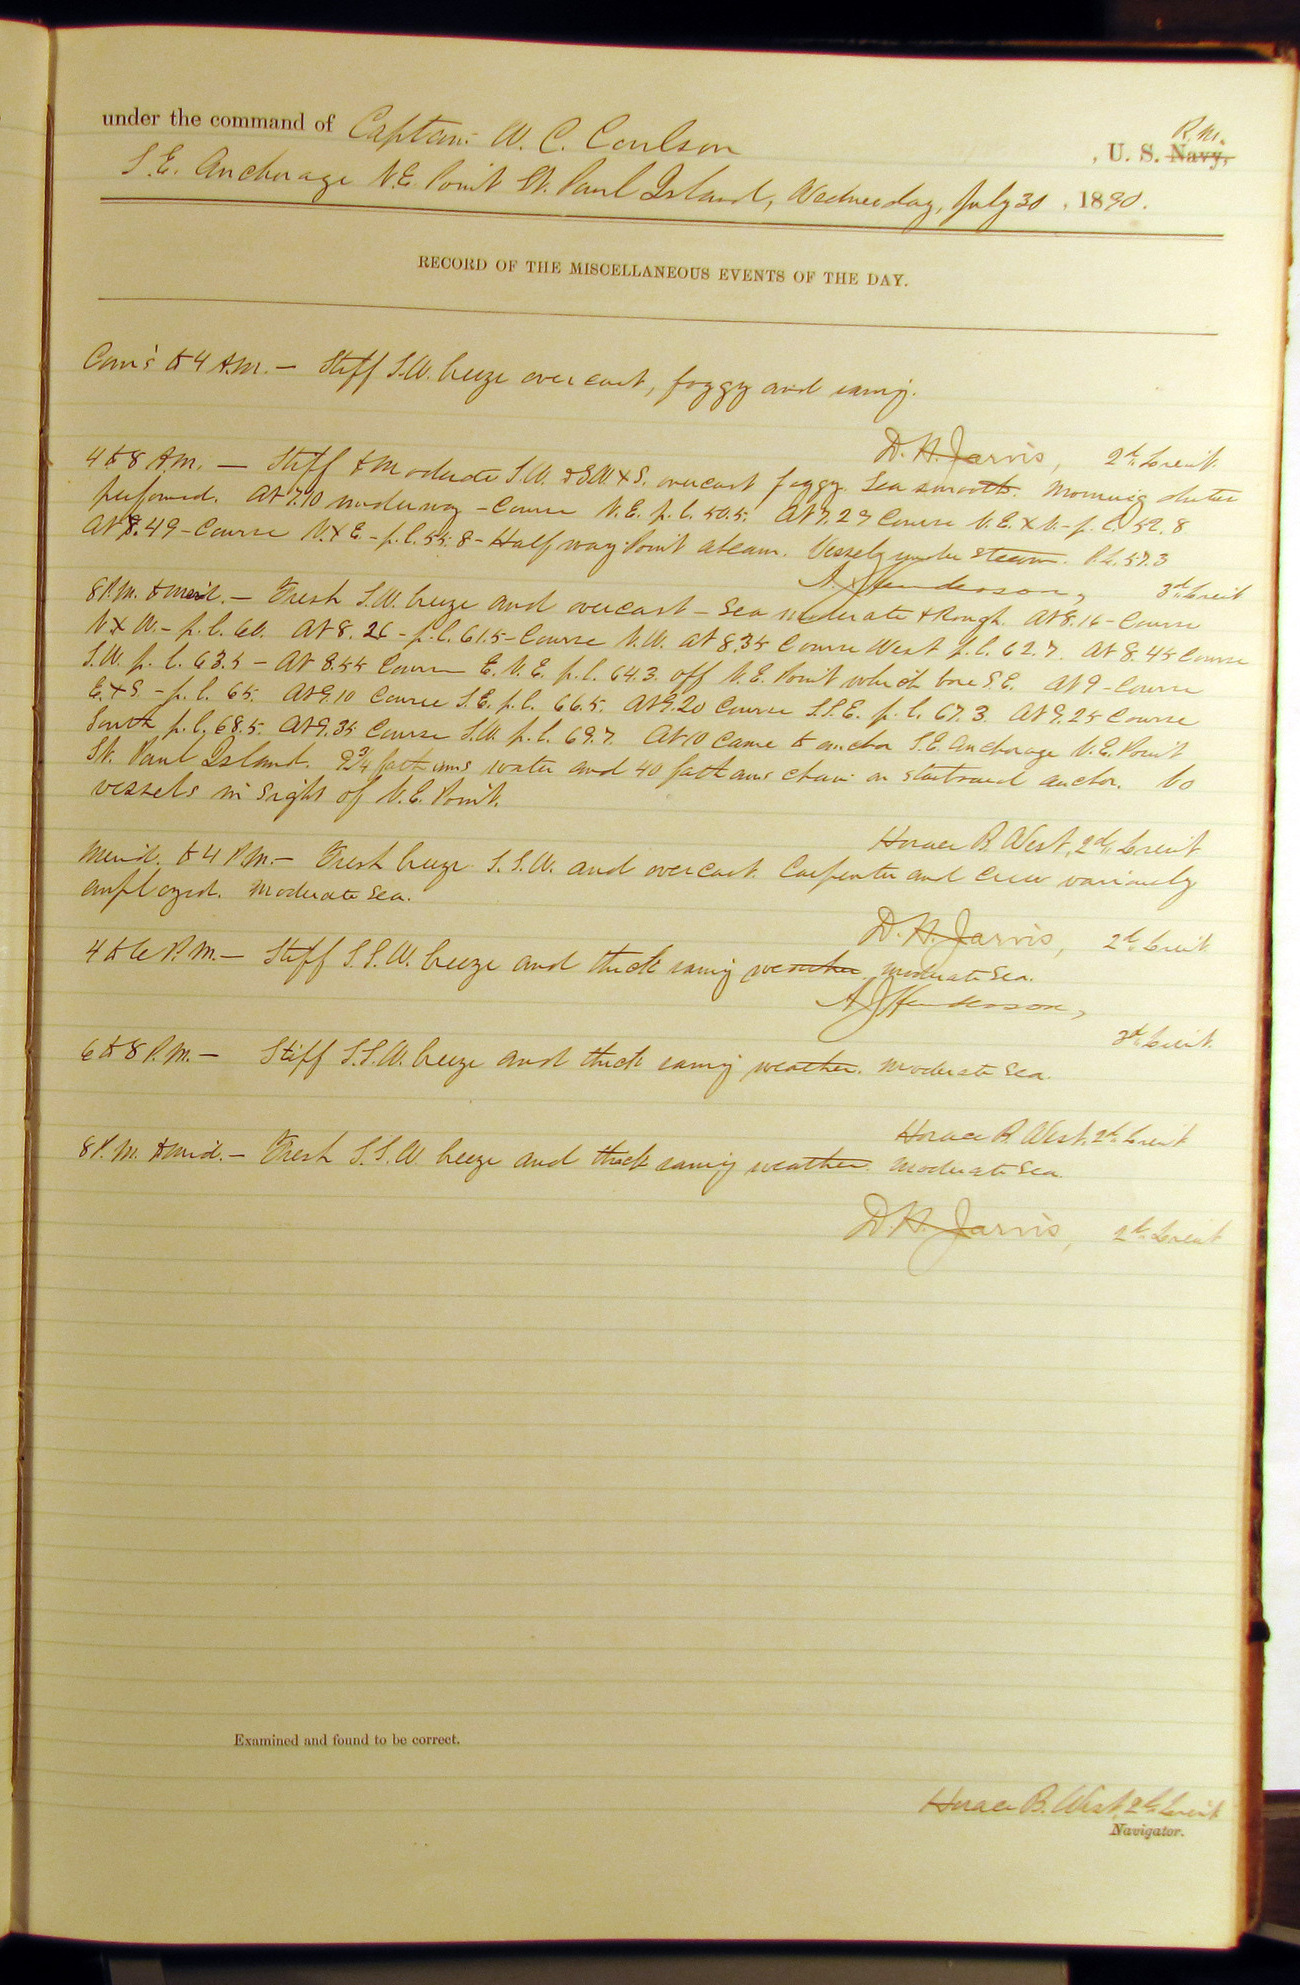 under the command of Captain W. C. Coulson , U. S. Navy, R. M.
S.E. Anchorage N.E. Point St. Paul Island, Wednesday, July 30 , 1890.
RECORD OF THE MISCELLANEOUS EVENTS OF THE DAY.
Com's to 4 A.M. — Stiff S.W. breeze overcast, foggy and rainy.
D. H. Jarvis, 2d. Lieut.
4 to 8 A.M. — Stiff to Moderate S.W. & S.W. x S. overcast foggy. Sea smooth. Morning duties
performed. At 7.10 underway - Course N.E. p.l. 50.5. At 7.29 Course N.E. x N - p.l. 52.8
At 7.49 - Course N. x E. - p.l. 55.8 - Half way Point abeam. Vessel under steam. P.L. 57.3
A. J. Henderson, 3d. Lieut
8 P.M. to Merid. — Fresh S.W. breeze and overcast - Sea moderate to Rough. At 8.16 - Course
N x W. - p.l. 60. At 8.26 - p.l. 61.5 - Course N.W. at 8.35 Course West p.l. 62.7. At 8.45 Course
S.W. p.l. 63.5 - At 8.55 Course E.N.E. p.l. 64.3. off N.E. Point which bore S.E. At 9 - Course
E. x S. - p.l. 65. At 9.10 Course S.E. p.l. 66.5. At 9.20 Course S.S.E. p.l. 67.3. At 9.25 Course
South p.l. 68.5. At 9.35 Course S.W. p.l. 69.7. At 10 Came to anchor S.E. Anchorage N.E. Point
St. Paul Island. 9 3/4 fathoms water and 40 fathoms chain on starboard anchor. No
vessels in sight of N.E. Point.
Horace B. West, 2d. Lieut
Merid. to 4 P.M. — Fresh breeze S.S.W. and overcast. Carpenter and Crew variously
employed. Moderate sea.
D. H. Jarvis, 2d. Lieut
4 to 6 P.M. — Stiff S.S.W. breeze and thick rainy weather. Moderate Sea.
A. J. Henderson,
3d. Lieut.
6 to 8 P.M. — Stiff S.S.W. breeze and thick rainy weather. Moderate Sea.
Horace B. West, 2d. Lieut
8 P.M. to mid. — Fresh S.S.W breeze and thick rainy weather. Moderate Sea.
D. H. Jarvis, 2d. Lieut
Examined and found to be correct.
Horace B. West, 2d. Lieut
Navigator.